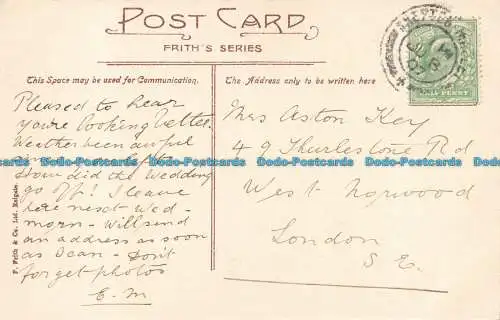 POST CARD
FRITH'S SERIES
This Space may be used for Communication.
The Address only to be written here
Pleased to hear
you're looking better.
Weather been awful
How did the Wedding
go off! I leave
here next Wed
mgrn - Will send
an address as soon
as I can - Don't
forget photos
E. M
Mrs Aston Key
49 Thurlestone Rd
West Norwood
London
S E.
F. Frith & Co. Ltd. Reigate.
HALF PENNY
Dodo-Postcards Dodo-Postcards Dodo-Postcards Dodo-Postcards Dodo-Postcards